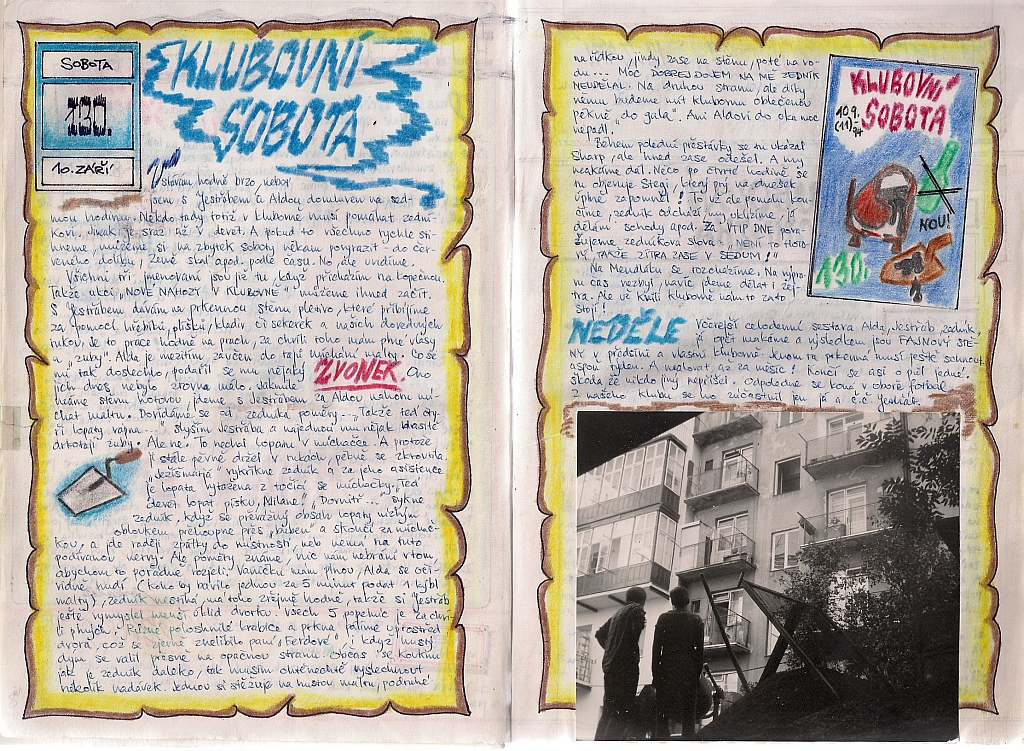 SOBOTA
130.
10. ZÁŘÍ
KLUBOVNÍ
SOBOTA
Vstávám hodně brzo, neboť
jsem s Jestřábem a Aldou domluven na sed-
mou hodinu. Někdo tady totiž v klubovně musí pomáhat zední-
kovi. Jinak je sraz až v devět. A pokud to všechno rychle sti-
hneme, můžeme si na zbytek soboty někam povyrazit - do čer-
veného dolíku, Žluté skal apod. podle času. No, ale uvidíme.
Všichni tři jmenovaní jsou již tu, když přicházím na Kopečnou.
Takže akci „NOVÉ NÁHOZY V KLUBOVNĚ" můžeme ihned začít.
S Jestřábem dávám na prkennou stěnu pletivo, které přibíjíme
za pomocí hřebíků, plíšků, kladiv či sekerek a našich dovedných
rukou. Je to práce hodně na prach, za chvíli toho mám plné vlasy
a „zuby". Alda je mezitím zaučen do tajů míchání malty. Co se
mu tak doslechlo, podařil se mu nějaký ZVONEK. Ono
jich dnes nebylo zrovna málo. Jakmile
máme stěnu hotovou, jdeme s Jestřábem za Aldou nahoru mí-
chat maltu. Dovídáme se od zedníka poměry... „Takže teď čty-
ři lopaty vápna..." slyším Jestřába a najednou mu nějak hlasitě
drkotají zuby. Ale ne! To nechal lopatu v míchačce. A protože
ji stále pevně držel v rukách, pěkně se zkroutila.
„Ježišmarjá" vykřikne zedník a za jeho asistence
je lopata vytažena z točící se míchačky. „Teď
devět lopat písku, Milane!" „Dovnitř..." sykne
zedník, když se převážný obsah lopaty nízkým
obloukem přehoupne přes „buben" a skončí za míchač-
kou, a jde raději zpátky do místnosti, neb nemá na tuto
podívanou nervy. Ale poměry známe, nic nám nebrání v tom,
abychom to pořádně rozjeli. Vaničku mám plnou, Alda se oči-
vidně nudí (koho by bavilo jednou za 5 minut podat 1 kýbl
malty), zedník nestíhá, má toho zřejmě hodně, takže si Jestřáb
ještě vymyslel menší úklid dvorku. Všech 5 popelnic je za chví-
li plných. Různé poloshnilé krabice a prkna pálíme uprostřed
dvora, což se zjevně znelíbilo paní „Ferdové", i když hustý
dým se valil přesně na opačnou stranu. Občas se kouknu
jak je zedník daleko, tak musím chtě nechtě vyslechnout
několik nadávek. Jednou si stěžuje na hustou maltu, podruhé
na řídkou, jindy zase na stěnu, poté na vo-
du... MOC DOBREJ DOJEM NA MĚ ZEDNÍK
NEUDĚLAL. Na druhou stranu, ale díky
němu budeme mít klubovnu oblečenou
pěkně „do gala". Ani Aldovi do oka moc
nepadl.
Během polední přestávky se mu ukázal
Sharp, ale ihned zase odešel. A my
makáme dál. Něco po čtvrté hodině se
mi objevuje Stegi, který prý na dnešek
úplně zapomněl! To už ale pomalu kon-
číme, zedník odchází, my uklízíme, já
dělám schody apod. Za VTIP DNE pova-
žujeme zedníkova slova: „NENÍ TO HOTO-
VÝ, TAKŽE ZÍTRA ZASE V SEDUM!"
Na Mendláku se rozcházíme. Na výpra-
vu čas nezbyl, navíc jdeme dělat i zej-
tra. Ale ve kvílí klubovně nám to zato
stojí!
KLUBOVNÍ
SOBOTA
10.9.
(11)94
NOU!
130.
NEDĚLE
Včerejší celodenní sestava Alda, Jestřáb, zedník,
já opět makáme a výsledkem jsou FAJNOVÝ STĚ-
NY v předsíni a vlastní klubovně. Jenom ta prkenná musí ještě schnout
aspoň týden. A malovat až za měsíc! Končí se asi o půl jedné.
Škoda že nikdo jiný nepřišel. Odpoledne se koná v oboře fotbal
z našeho klubu se ho zúčastnil jen já a čtč. Jestřáb.